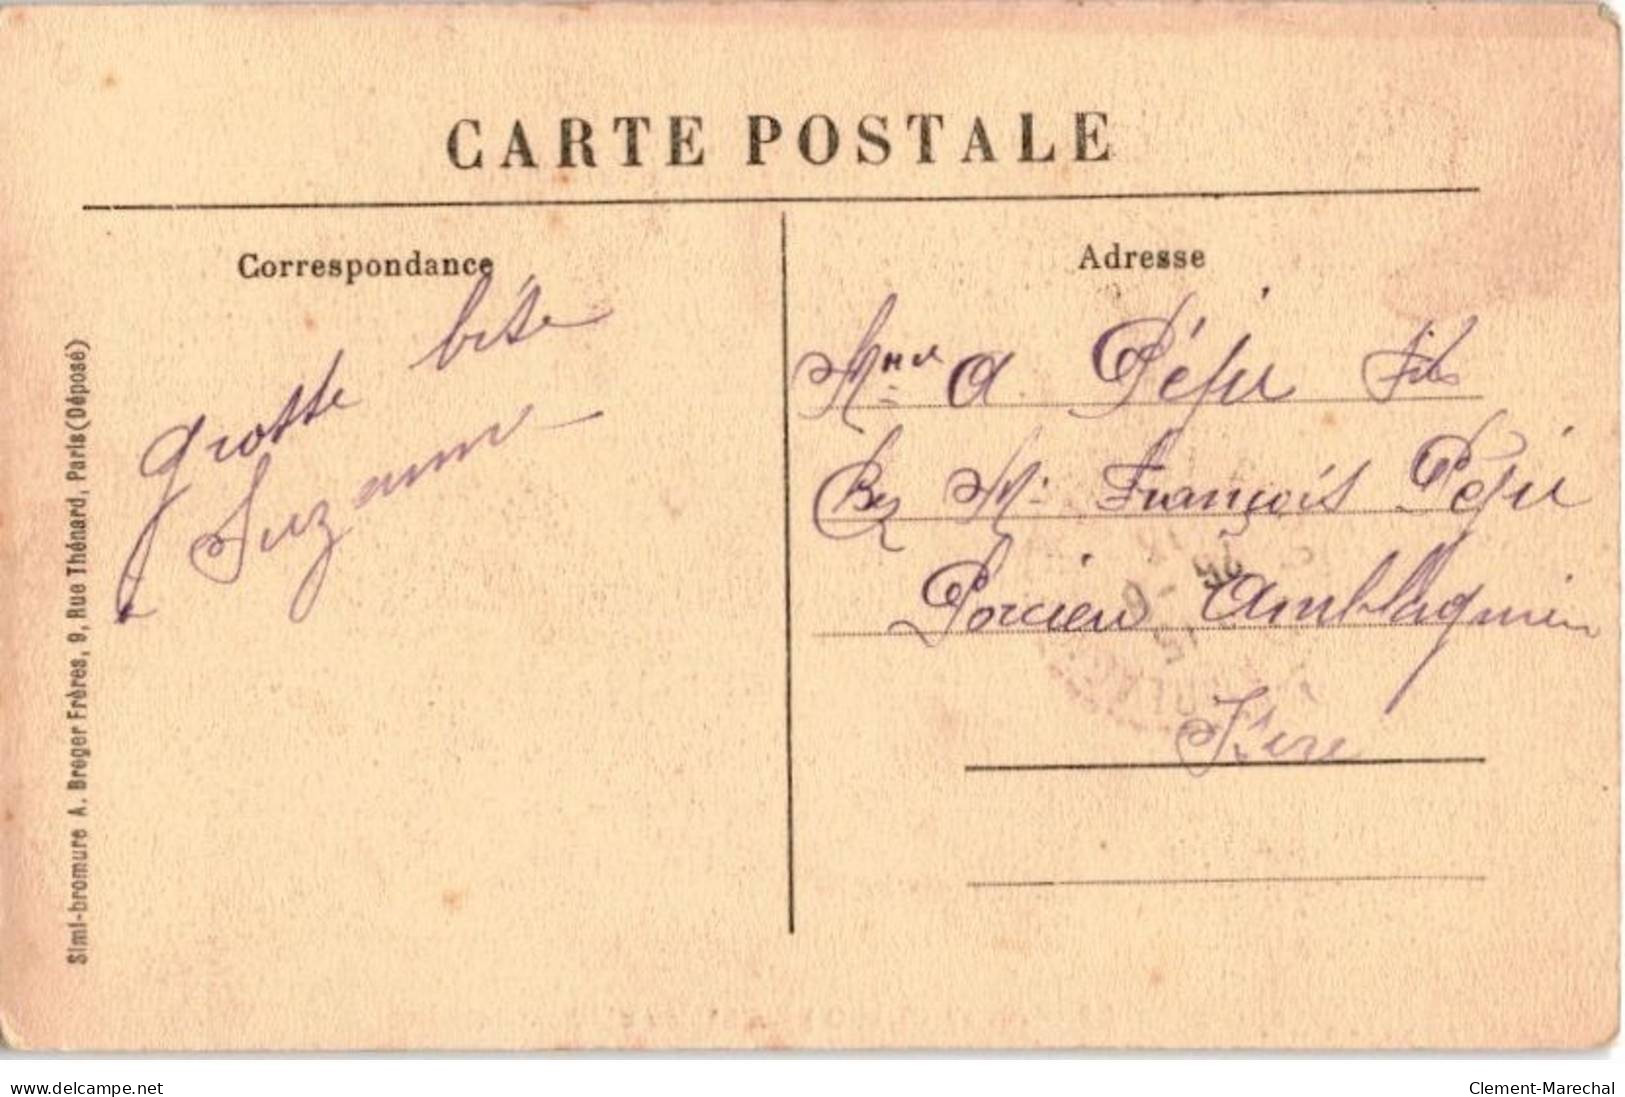 CARTE POSTALE
Correspondance
grosse bise
Suzanne
Simi-bromure A. Breger Frères, 9, Rue Thénard, Paris (Déposé)
Adresse
Mme A. Péju Fils
Chez Mr François Péju
Porcieu Amblagnieu
Isère
25 - 6
15
www.delcampe.net
Clement-Marechal